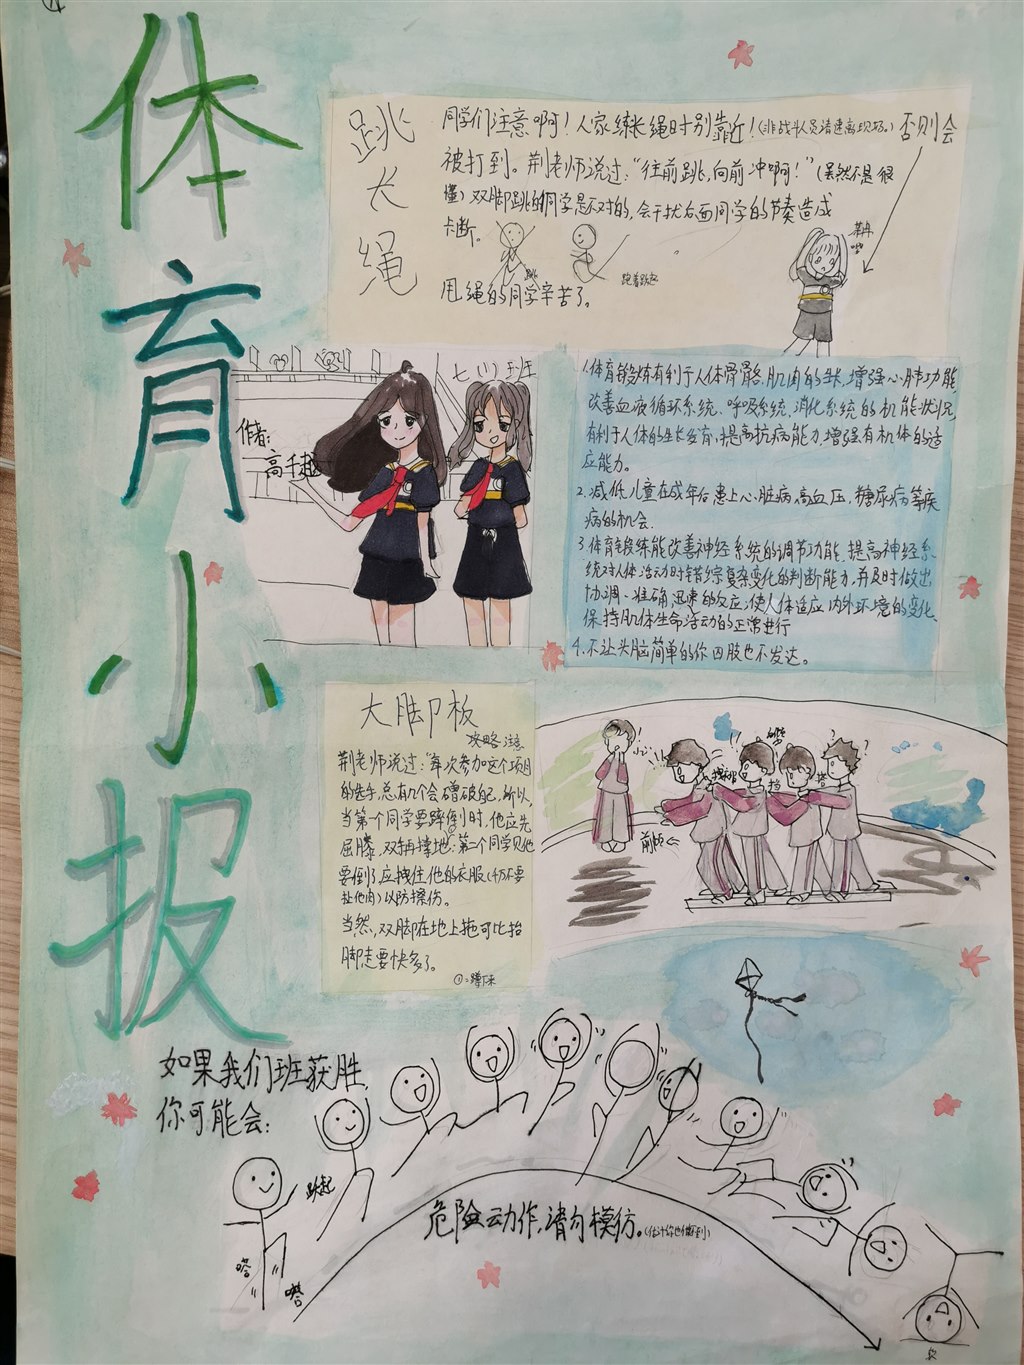 体育小报
跳长绳
同学们注意啊！人家练长绳时别靠近！(非战斗人员请速离现场。)否则会
被打到。荆老师说过："往前跳，向前冲啊！"(虽然不是很
懂)双脚跳的同学是不对的，会干扰后面同学的节奏造成
卡断。
跳
跑着跃起
甩绳的同学辛苦了。
七(1)班
作者：
高千越
1.体育锻炼有利于人体骨骼、肌肉的生长，增强心肺功能，
改善血液循环系统、呼吸系统、消化系统的机能状况，
有利于人体的生长发育，提高抗病能力，增强有机体的适
应能力。
2.减低儿童在成年后患上心脏病，高血压，糖尿病等疾
病的机会.
3.体育锻练能改善神经系统的调节功能，提高神经系
统对人体活动时错综复杂变化的判断能力，并及时做出
协调、准确迅速的反应；使人体适应内外环境的变化、
保持肌体生命活动的正常进行
4.不让头脑简单的你四肢也不发达。
大脚板
攻略 注意
荆老师说过："每次参加这个项目
的选手，总有几个会碰破自己，所以，
当第一个同学要蹲①倒时，他应先
屈膝，双手再撑地；第二个同学见他
要倒了应拽住他的衣服(千万不要
扯他肉)以防擦伤。
当然，双脚在地上拖可比抬
脚走要快多了。
①=蹲下来
前的
如果我们班获胜，
你可能会：
跃起
嗒
嗒
危险动作，请勿模仿。(估计你也做不到)